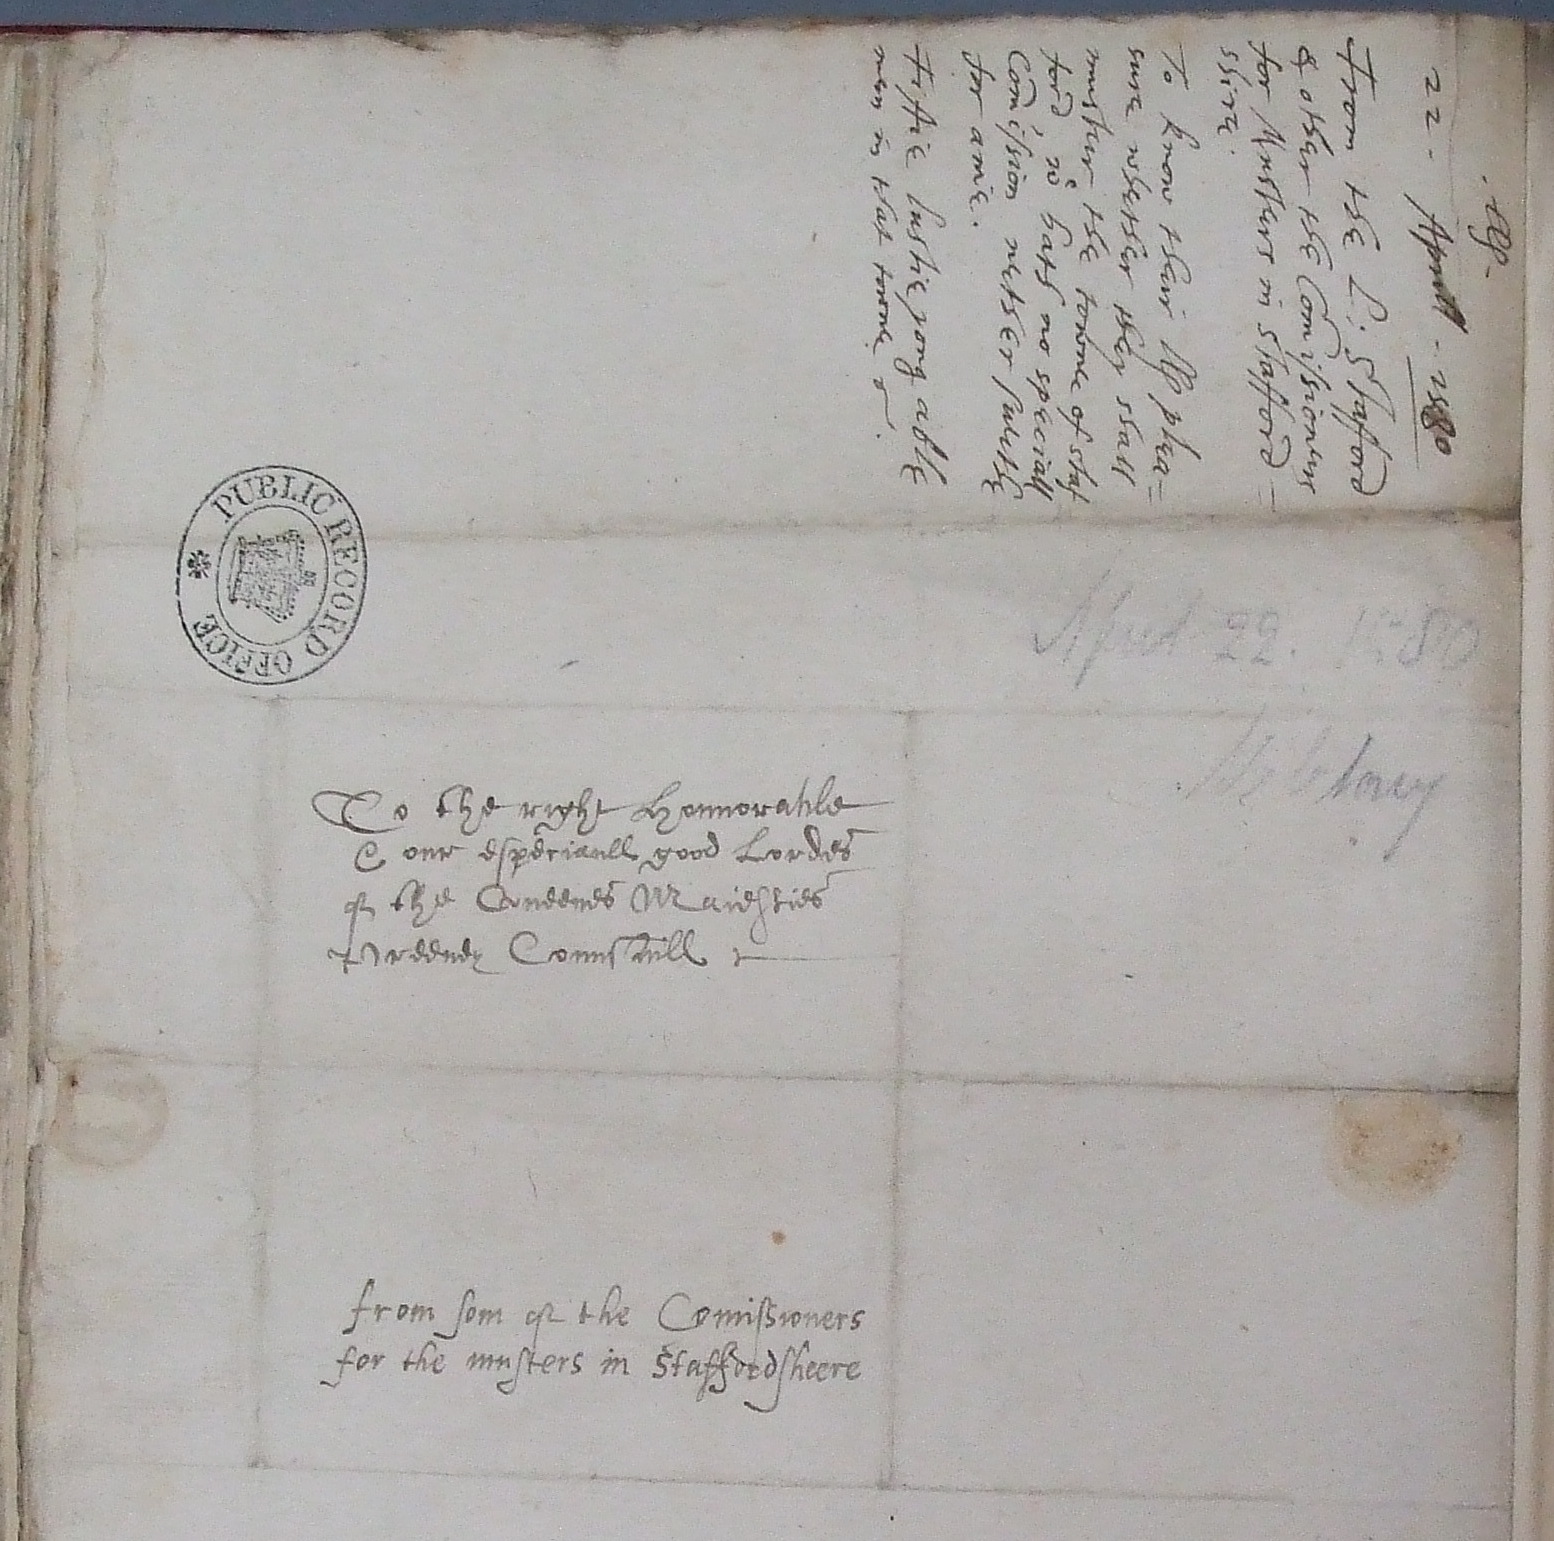 22 - Aprill - 1580
From the L: Stafford
& other the Comissioners
for Musters in Stafford=
shire.
To know their Lps plea=
sure whether they shall
muster the towne of Staf
ford wc hath no speciall
Comission nether sueth
for anie.
Fiftie lustie yong able
men in that towne
April 22. 1580
PUBLIC RECORD OFFICE
To the right Honnorable
& our especiaull good Lordes
of the Queenes Maiesties
Preeuey Counsaill
from som of the Comissioners
for the musters in Staffordsheere